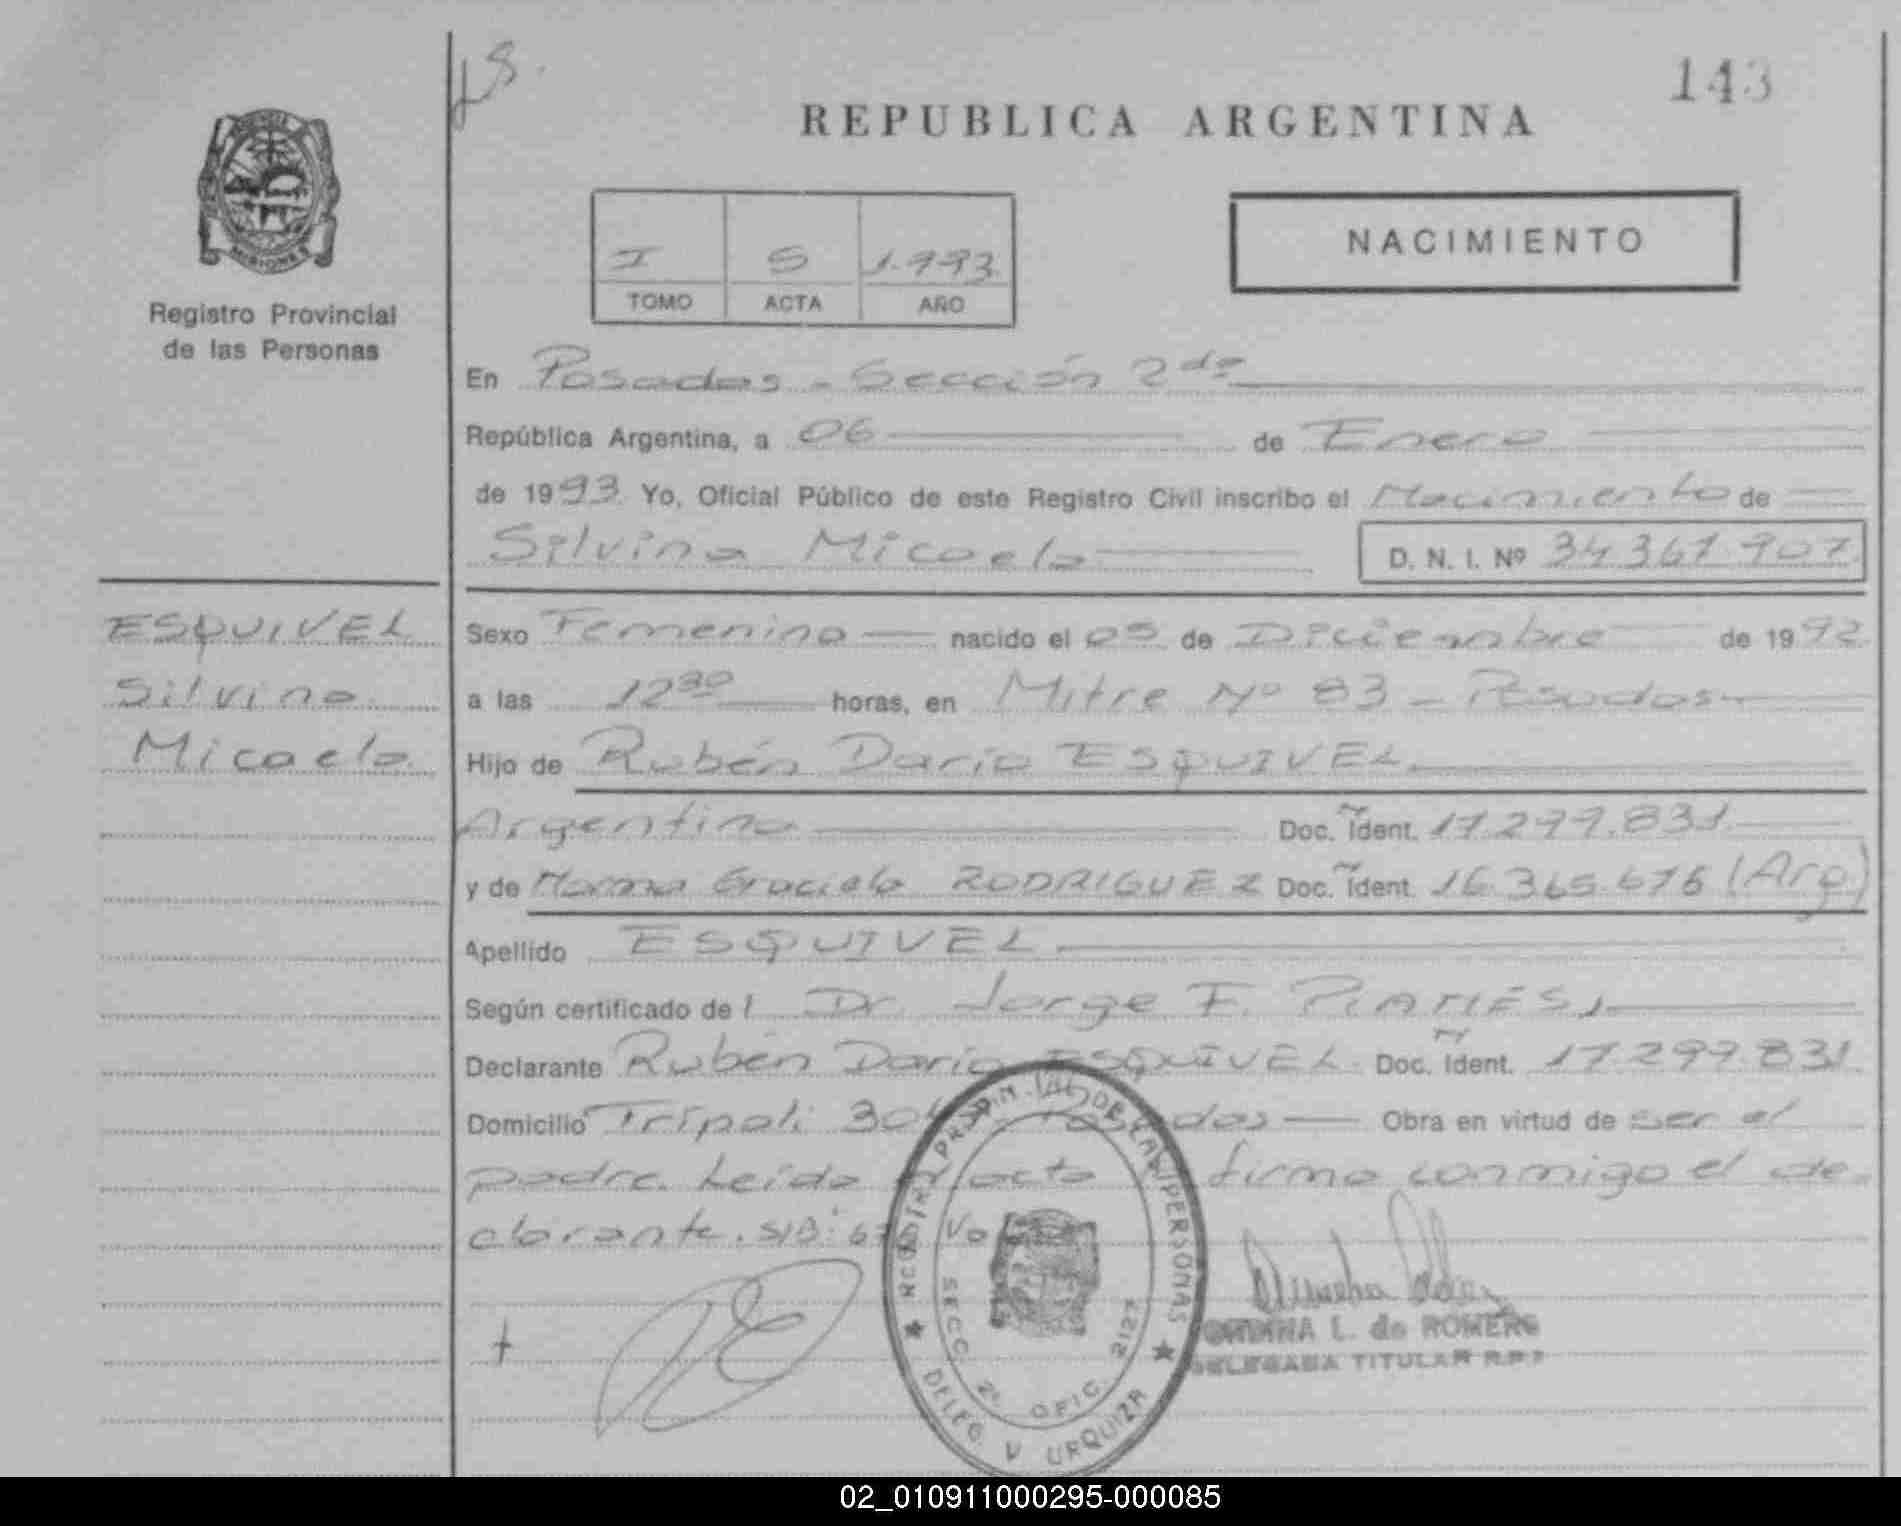 143
REPUBLICA ARGENTINA
MISIONES
NACIMIENTO
I S 1.993
TOMO ACTA AÑO
Registro Provincial
de las Personas
En Posadas - Sección 2da
República Argentina, a 06 de Enero
de 1993 Yo, Oficial Público de este Registro Civil inscribo el Nacimiento de
Silvina Micaela D. N. I. Nº 34.361.907
ESQUIVEL
Silvina
Micaela
Sexo Femenino nacido el 05 de Diciembre de 1992
a las 12 30 horas, en Mitre Nº 83 - Posadas
Hijo de Rubén Darío ESQUIVEL
Argentino Doc. Ident. 17.299.831
y de Graciela RODRIGUEZ Doc. Ident. 16.365.676 (Arg.)
Apellido ESQUIVEL
Según certificado de l Dr. Jorge F.
Declarante Rubén Darío ESQUIVEL Doc. Ident. 17.299.831
Domicilio Trípoli Posadas Obra en virtud de ser el
padre. Leída acta firma conmigo el de-
clarante.
DE LAS PERSONAS
SECC. 2º OFIC. 2127
DELEG. V URQUIZA
L. de ROMERO
DELEGADA TITULAR R.P.P
02_010911000295-000085